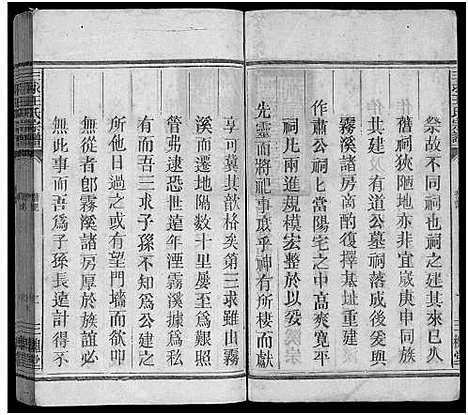 祭故不同祠也祠之建來已久
舊祠狹陋地亦非宜歲庚申同族
其建 有道公墓祠落成後爰與
霧溪諸房商酌復擇基址重建
作肅公祠匕當陽宅之中高爽寬平
祠凡兩進規模宏整於以妥
先靈而將祀事庶乎神有所棲而獻
享可冀其歆格矣第三求雖由霧
溪而遷地隔數十里屢至或有不
管弗逮恐世遠湮霧溪據爲私
有而吾三求子孫不知爲公建之
所他日過之或有望門墻而不敢
級者從者郎霧溪諸房厚於族誼必
無此事而吾爲子孫長遠計得不
三求王氏宗譜
三槐堂